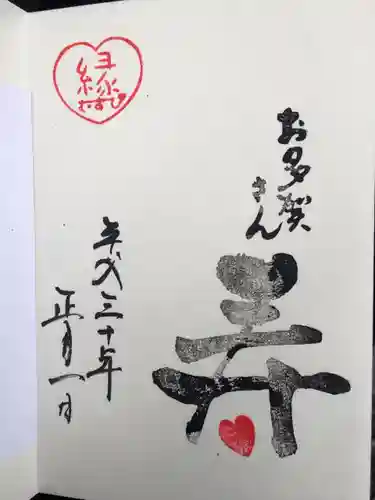 お多賀
さん
寿
縁
むすび
平成三十年
正月一日